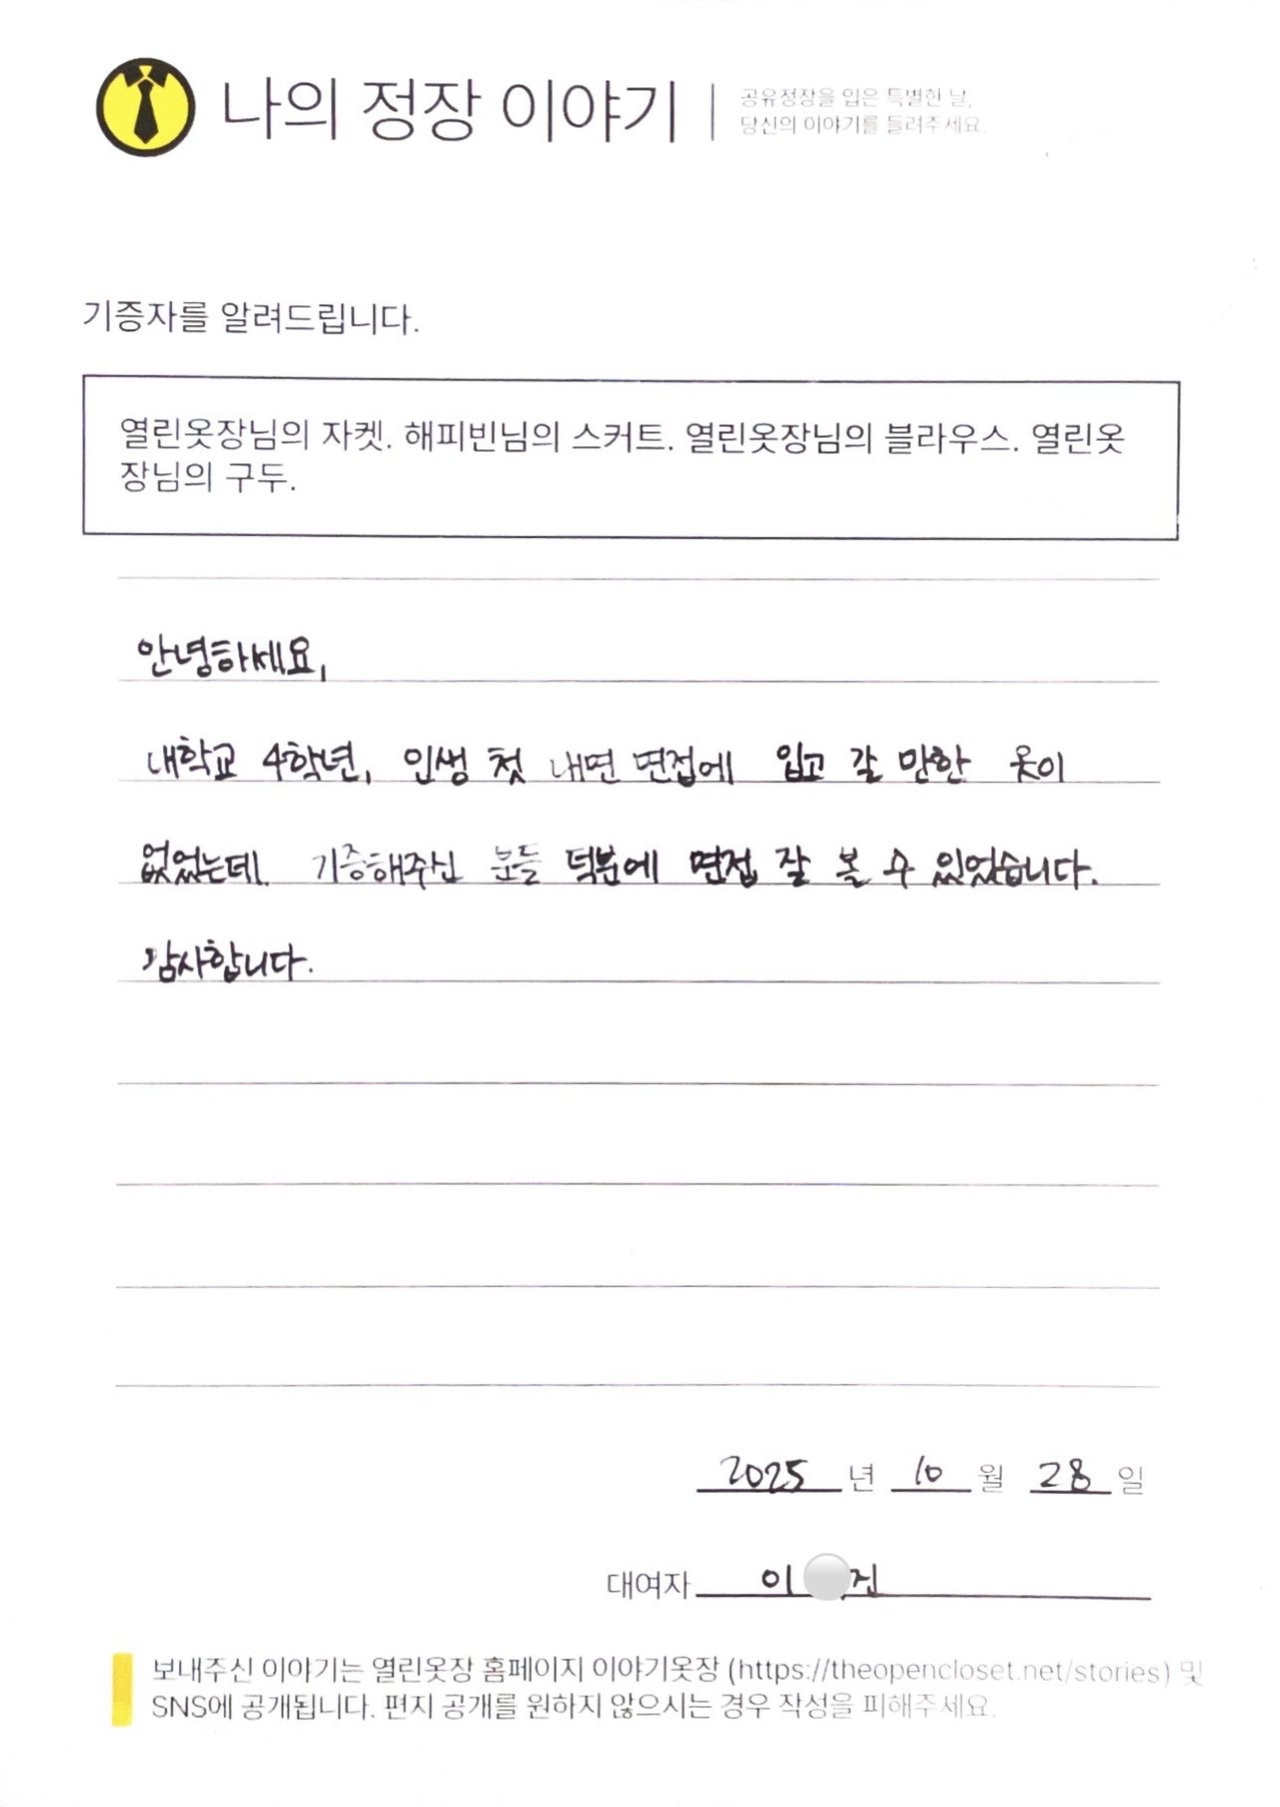 나의 정장 이야기
공유정장을 입은 특별한 날,
당신의 이야기를 들려주세요.
기증자를 알려드립니다.
열린옷장님의 자켓. 해피빈님의 스커트. 열린옷장님의 블라우스. 열린옷
장님의 구두.
안녕하세요,
대학교 4학년, 인생 첫 대면 면접에 입고 갈 만한 옷이
없었는데, 기증해주신 분들 덕분에 면접 잘 볼 수 있었습니다.
감사합니다.
2025 년 10 월 28 일
대여자 이 진
보내주신 이야기는 열린옷장 홈페이지 이야기옷장 (https://theopencloset.net/stories) 및
SNS에 공개됩니다. 편지 공개를 원하지 않으시는 경우 작성을 피해주세요.